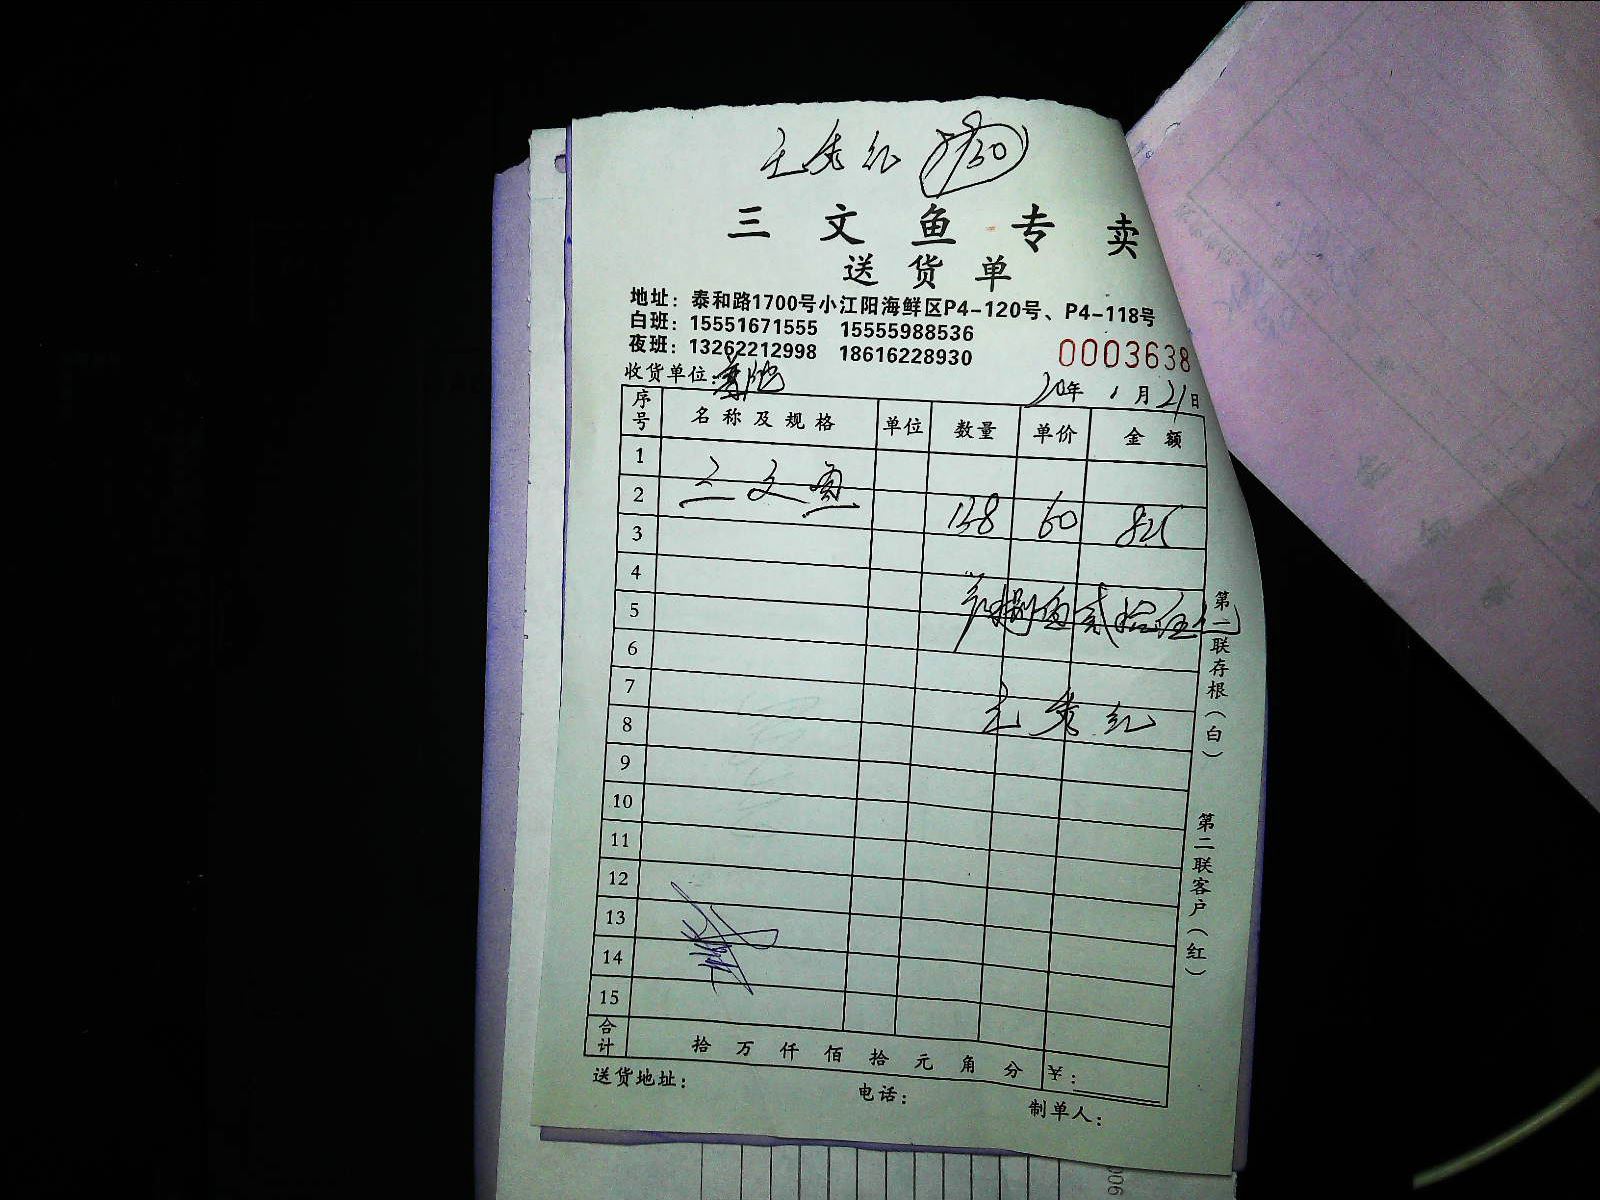 三文鱼专卖
送货单
地址：泰和路1700号小江阳海鲜区P4-120号、P4-118号
白班：15551671555 15555988536
夜班：13262212998 18616228930
0003638
收货单位：
20年1月21日
序号 名称及规格 单位 数量 单价 金额
1
2 三文鱼 138 60 825
3
4
5 捌佰贰拾伍元
6
7
8 王秀红
9
10
11
12
13
14
15
合计 拾 万 仟 佰 拾 元 角 分 ¥：
送货地址： 电话： 制单人：
第一联存根（白）
第二联客户（红）